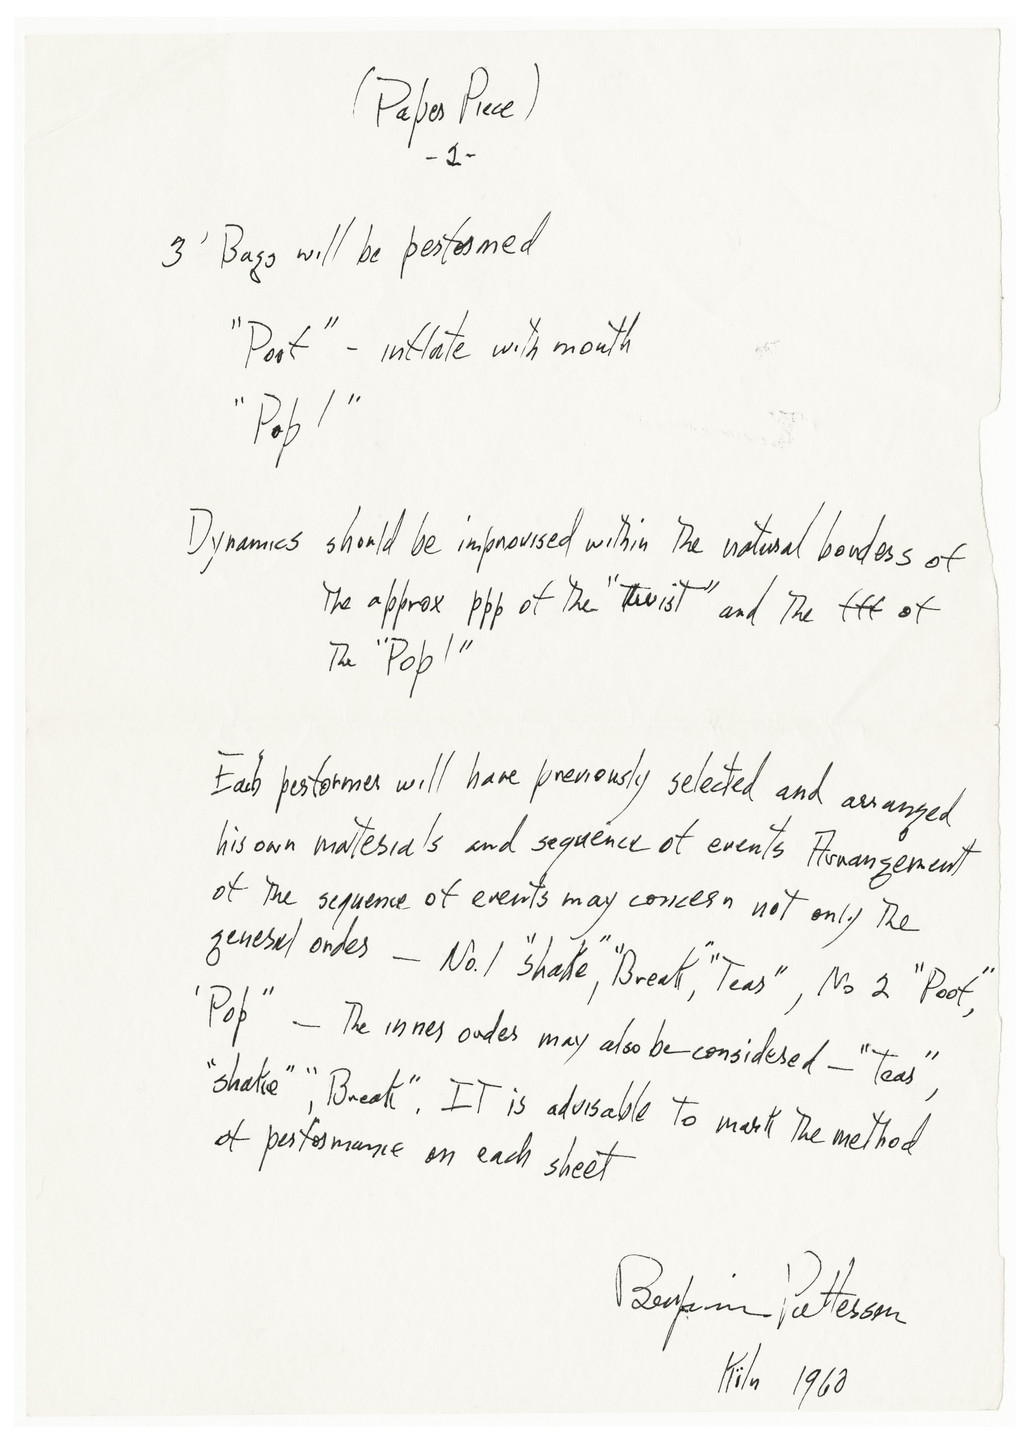 (Paper Piece)
-2-
3' Bags will be performed
"Poot" - inflate with mouth
"Pop!"
Dynamics should be improvised within the natural borders of
the approx ppp of the "twist" and the fff of
the "Pop!"
Each performer will have previously selected and arranged
his own materials and sequence of events Arrangement
of the sequence of events may concern not only the
general order — No. 1 "shake", "Break", "Tear", No 2 "Poot,"
'Pop" — The inner order may also be considered — "Tear",
"shake", "Break". IT is advisable to mark the method
of performance on each sheet
Benjamin Patterson
Köln 1960